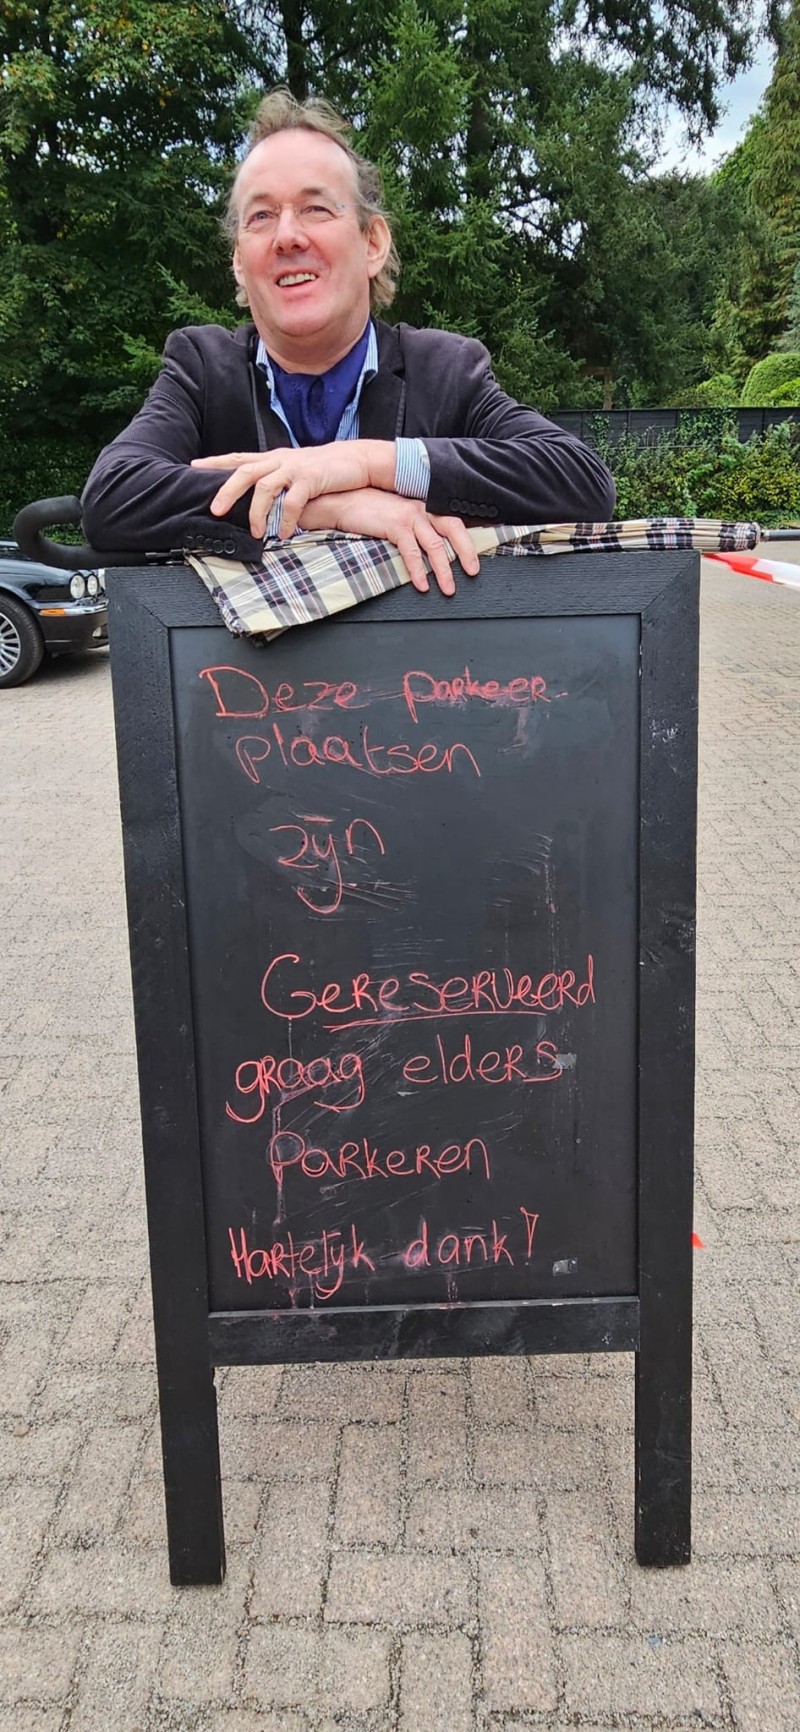 Deze parkeer-
plaatsen
zijn
Gereserveerd
graag elders
Parkeren
Hartelijk dank!